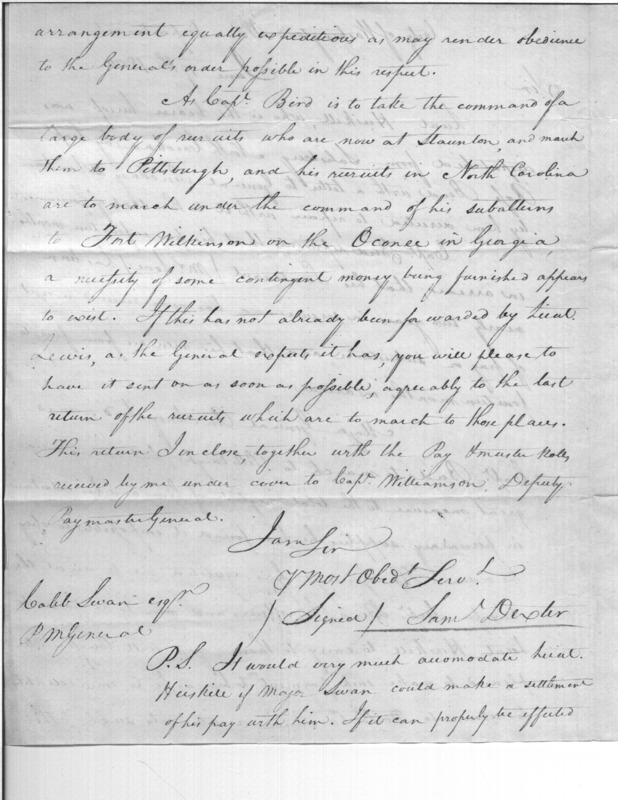 arrangement equally expeditious as may render obedience
to the General's order possible in this respect.
As Capt. Bird is to take the command of a
large body of recruits who are now at Staunton, and march
them to Pittsburgh, and his recruits in North Carolina
are to march under the command of his subalterns
to Fort Wilkinson on the Oconee in Georgia,
a necessity of some contingent money being furnished appears
to exist. If this has not already been forwarded by Lieut
Lewis, as the General expects it has, you will please to
have it sent on as soon as possible, agreably to the last
return of the recruits which are to march to those places.
This return I inclose, together with the Pay & muster Rolls
received by me under cover to Capt. Williamson Deputy
Paymaster General.
I am Sir
Yr most Obedt. Servt.
(Signed) Saml. Dexter
Caleb Swan esqr.
P.M General
P.S. It would very much accomodate Lieut.
if Major Swan could make a settlement
of his pay with him. If it can properly be effected